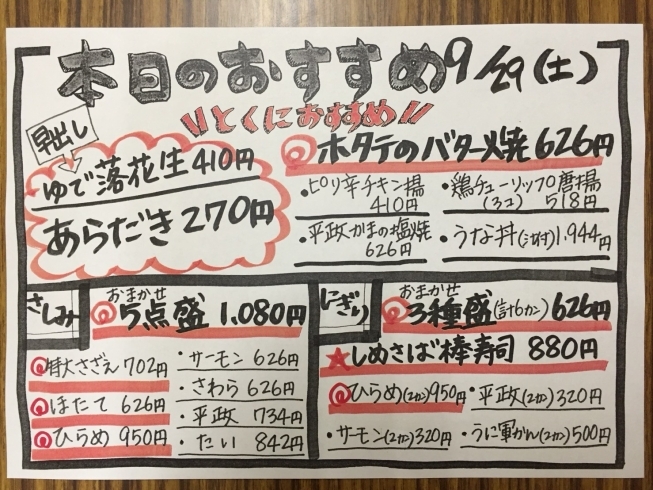 本日のおすすめ 9/29(土)
\\とくにおすすめ//
早出し
ゆで落花生 410円
あらだき 270円
ホタテのバター焼 626円
・ピリ辛チキン揚 410円
・鶏チューリップ唐揚 (3コ) 518円
・平政かまの塩焼 626円
・うな丼(汁付) 1,944円
さしみ
おまかせ
5点盛 1,080円
特大さざえ 702円
ほたて 626円
ひらめ 950円
・サーモン 626円
・さわら 626円
・平政 734円
・たい 842円
にぎり
おまかせ
3種盛(計6カン) 626円
★しめさば棒寿司 880円
ひらめ(2カン) 950円
・平政(2カン) 320円
・サーモン(2カン) 320円
・うに軍かん(2カン) 500円